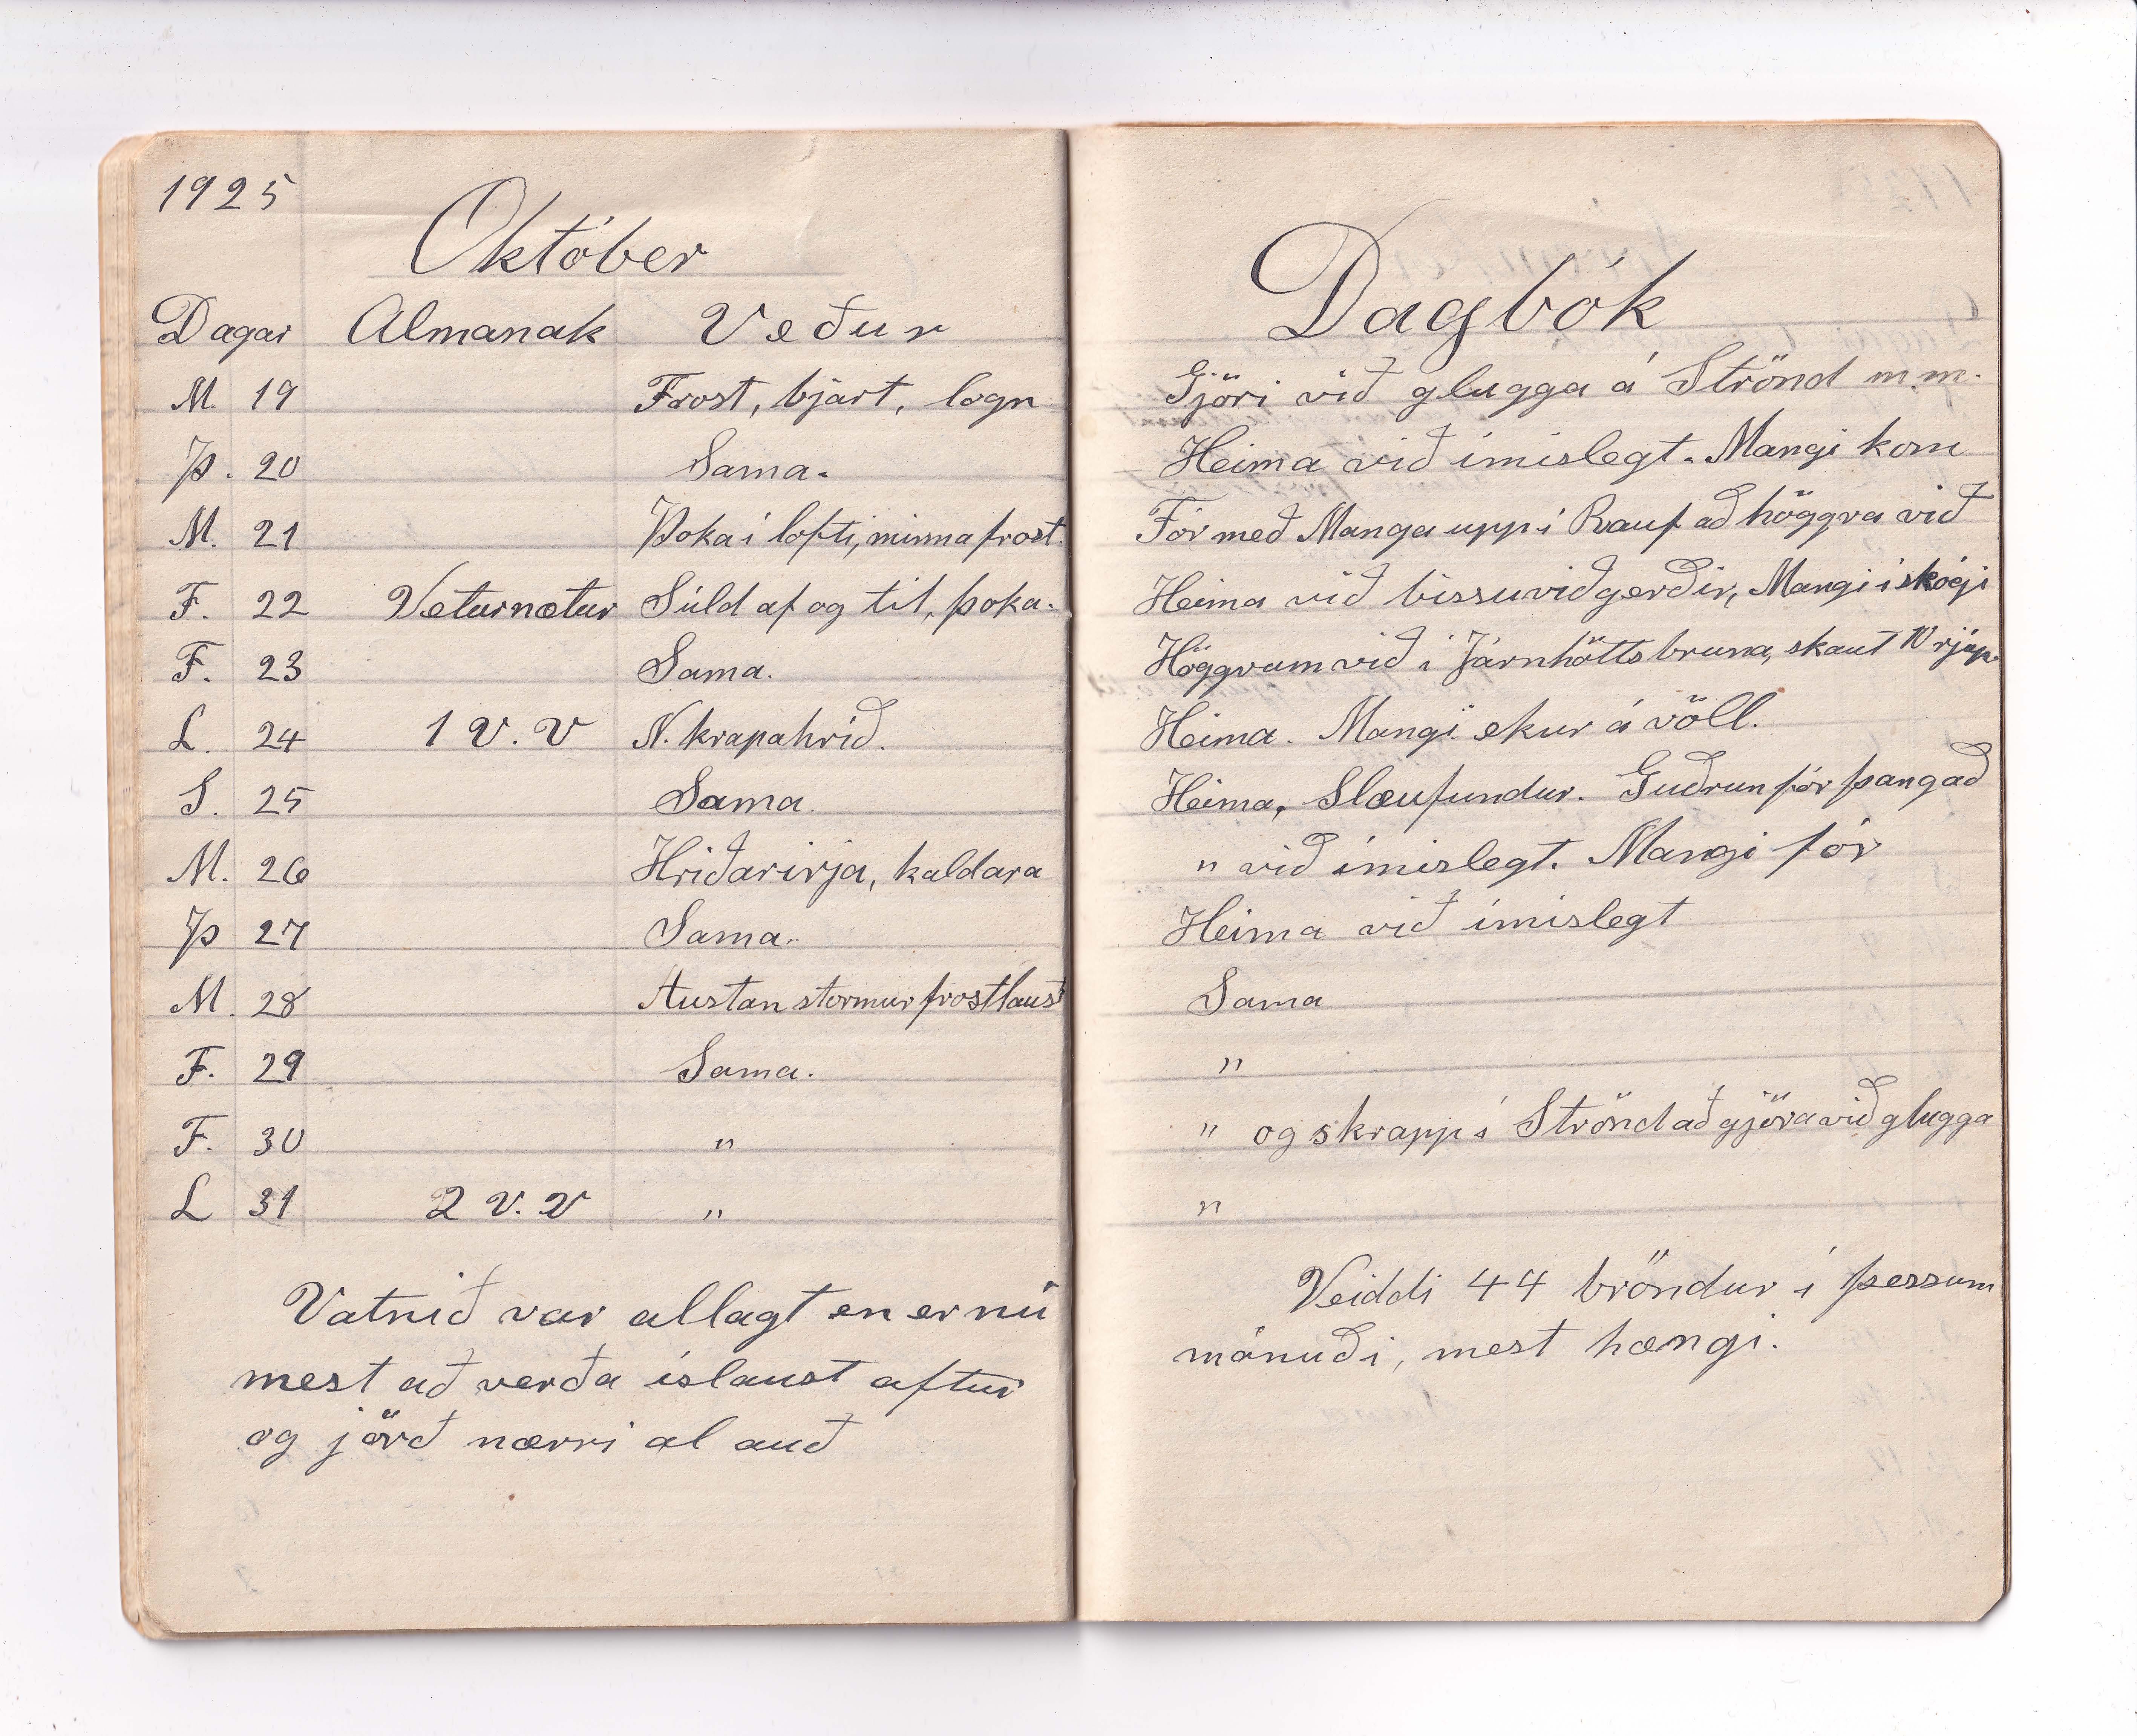 1925
Október
Dagar Almanak Veður
M. 19 Frost, bjart, logn
Þ. 20 Sama.
M. 21 Þoka í lofti, minna frost.
F. 22 Veturnætur Súld af og til, þoka.
F. 23 Sama.
L. 24 1 V. V N. krapahríð.
S. 25 Sama.
M. 26 Hríðarirja, kaldara
Þ 27 Sama.
M. 28 Austan stormur frostlaust
F. 29 Sama.
F. 30 "
L 31 2 V. V "
Vatnið var allagt en er nú
mest að verða íslaust aftur
og jörð nærri al auð
Dagbók
Gjöri við glugga á Strönd m.m.
Heima við ímislegt. Mangi kom
Fór með Manga upp í Rauf að höggva við
Heima við bissuviðgerðir, Mangi í skógi
Höggvum við í Járnhöttsbruna, skaut 10 rjúp.
Heima. Mangi ekur á völl.
Heima, Slæufundur. Guðrun fór þangað
" við ímislegt. Mangi fór
Heima við ímislegt
Sama
"
" og skrapp í Strönd að gjöra við glugga
"
Veiddi 44 bröndur í þessum
mánuði, mest hængi.